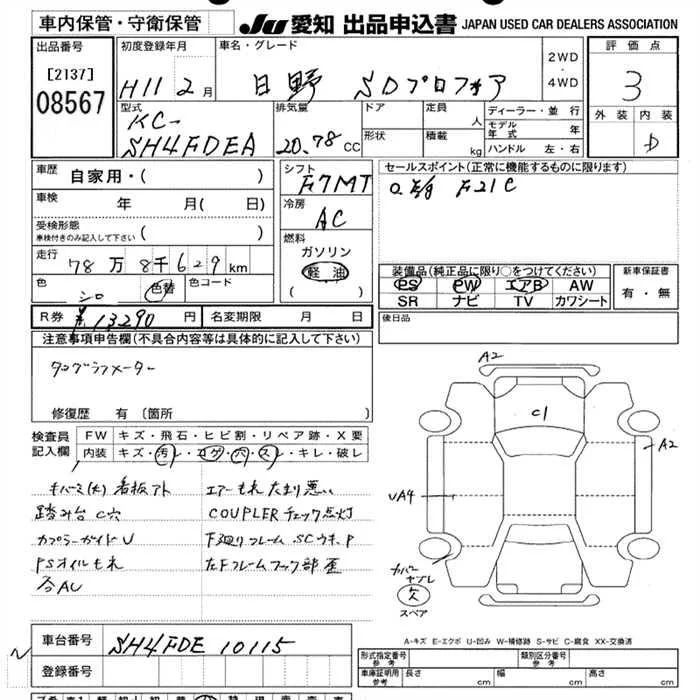 車内保管・守衛保管
JU 愛知 出品申込書 JAPAN USED CAR DEALERS ASSOCIATION
出品番号
[2137]
08567
初度登録年月
H11 2月
車名・グレード
日野 SDプロフィア
2WD
・
4WD
評価点
3
外装 内装
D
型式
KC-
SH4FDEA
排気量
20.78 CC
ドア
形状
定員 人
積載 kg
ディーラー・並行
モデル年式 年
ハンドル 左・右
車歴
自家用・( )
車検 年 月( 日)
受検形態
車検付きのみ記入して下さい ( )
走行
78万 8千629km
色
シロ 色替
色コード
シフト
F7MT
冷房
AC
燃料
ガソリン
軽油
( )
セールスポイント(正常に機能するものに限ります)
F21C
装備品(純正品に限り○をつけてください)
PS PW エアB AW
SR ナビ TV カワシート
新車保証書
有・無
R券 ¥13290円 名変期限 月 日
後日品
注意事項申告欄(不具合内容等は具体的に記入して下さい)
タコグラフメーター
修復歴 有 (箇所 )
検査員
記入欄
FW キズ・飛石・ヒビ割・リペア跡・X要
内装 キズ・汚レ・コゲ・穴・スレ・キレ・破レ
看板アト
エアーもれ たまり悪い
踏み台 C穴
COUPLERチェック点灯
カプラーガイド U
F廻りフレーム SCサネ、P
PSオイルもれ
左Fフレームフック部 歪
各AU
A2
C1
A2
UA4
カバー
ヤブレ
欠
スペア
A-キズ E-エクボ U-凹み W-補修跡 S-サビ C-腐食 XX-交換済
車台番号
SH4FDE 10115
登録番号
形式指定番号
参考
類別区分番号
参考
車庫証明用
参考
長さ cm 幅 cm 高さ cm